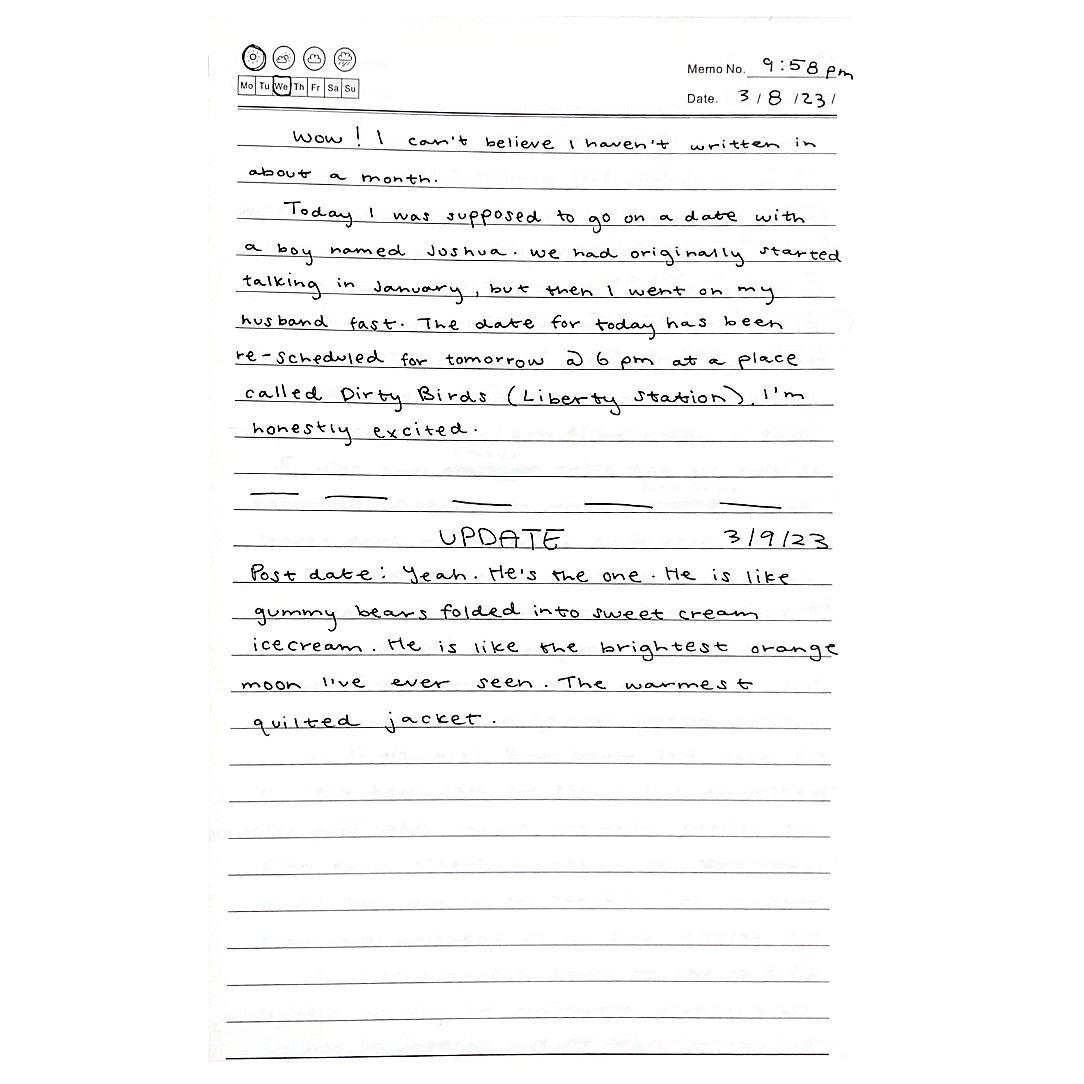 Memo No. 9:58 pm
Mo Tu We Th Fr Sa Su
Date. 3/8/23/
Wow! I can't believe I haven't written in
about a month.
Today I was supposed to go on a date with
a boy named Joshua. We had originally started
talking in January, but then I went on my
husband fast. The date for today has been
re-scheduled for tomorrow @ 6 pm at a place
called Dirty Birds (Liberty Station). I'm
honestly excited.
UPDATE 3/9/23
Post date: Yeah. He's the one. He is like
gummy bears folded into sweet cream
icecream. He is like the brightest orange
moon I've ever seen. The warmest
quilted jacket.